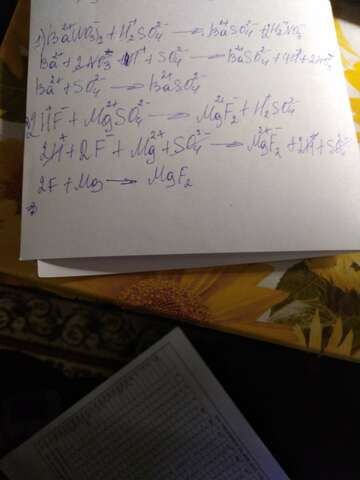 1) Ba²⁺(NO₃⁻)₂ + H₂⁺SO₄²⁻ → Ba²⁺SO₄²⁻ + 2H⁺NO₃⁻
Ba²⁺ + 2NO₃⁻ + H⁺ + SO₄²⁻ → Ba²⁺SO₄²⁻ + 2NO₃⁻
Ba²⁺ + SO₄²⁻ → Ba²⁺SO₄²⁻
2) 2H⁺F⁻ + Mg²⁺SO₄²⁻ → Mg²⁺F₂⁻ + H₂⁺SO₄²⁻
2H⁺ + 2F⁻ + Mg²⁺ + SO₄²⁻ → Mg²⁺F₂⁻ + 2H⁺ + SO₄²⁻
2F + Mg → MgF₂
3)